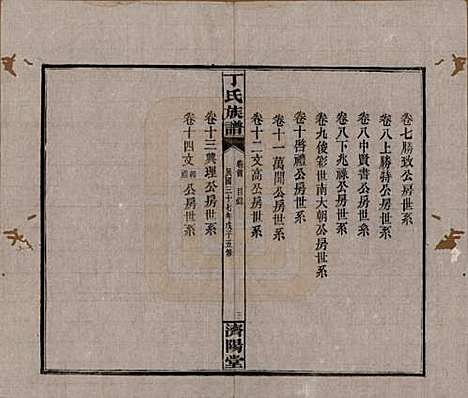 卷七勝致公房世系
卷八上勝特公房世系
卷八中賢書公房世系
卷八下兆祿公房世系
卷九俊彩世南大朝公房世系
卷十啓禮公房世系
卷十一萬開公房世系
卷十二文高公房世系
丁氏族譜
卷首 目錄
民國三十七年戊子五修
三
濟陽堂
卷十三興理公房世系
卷十四文禮公房世系